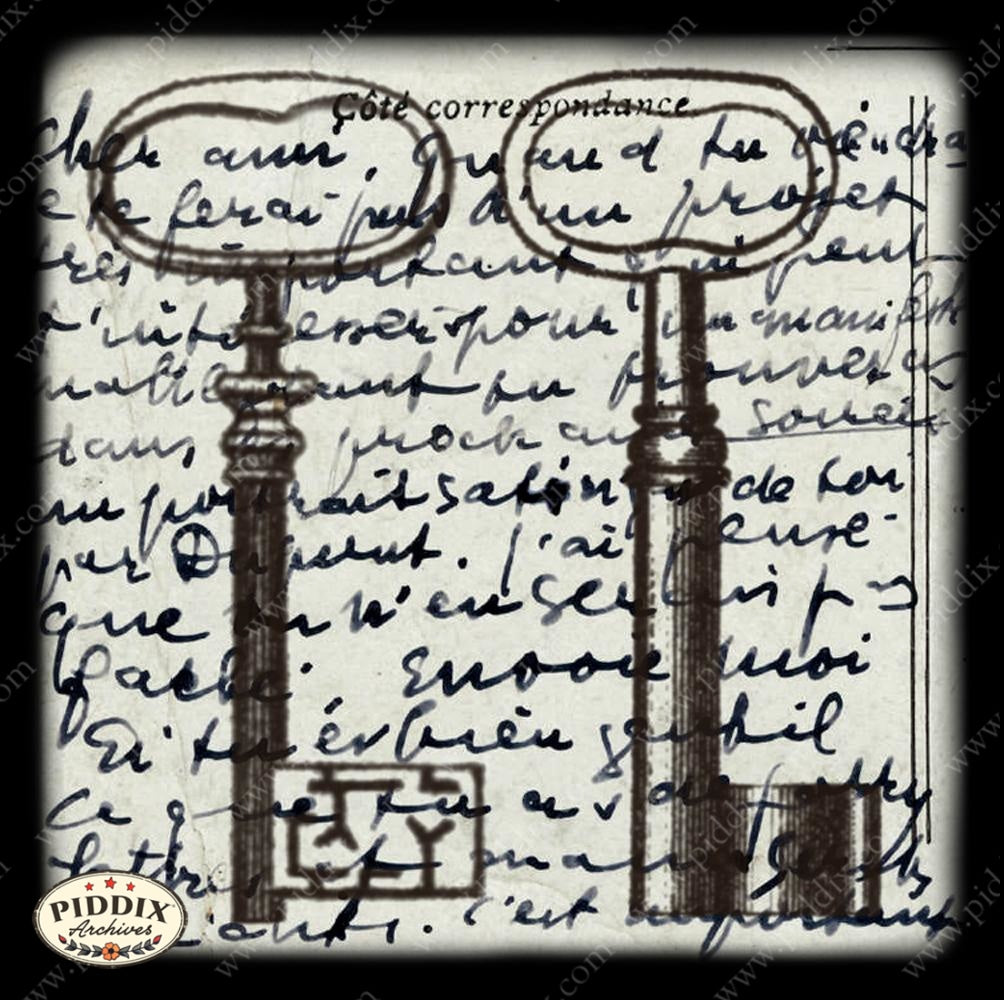 Côté correspondance
Cher ami, quand tu viendra
te ferai part d'un projet
très important qui peut
t'intéresser pour un manifeste
tu trouveras
dans prochain
un portrait de toi
par Dupont. j'ai pensé
que tu n'en serais pas
faché. Envoie moi
Si tu es bien gentil
ce que tu as de
lettres et manuscrits
c'est important
PIDDIX
Archives
www.piddix.com